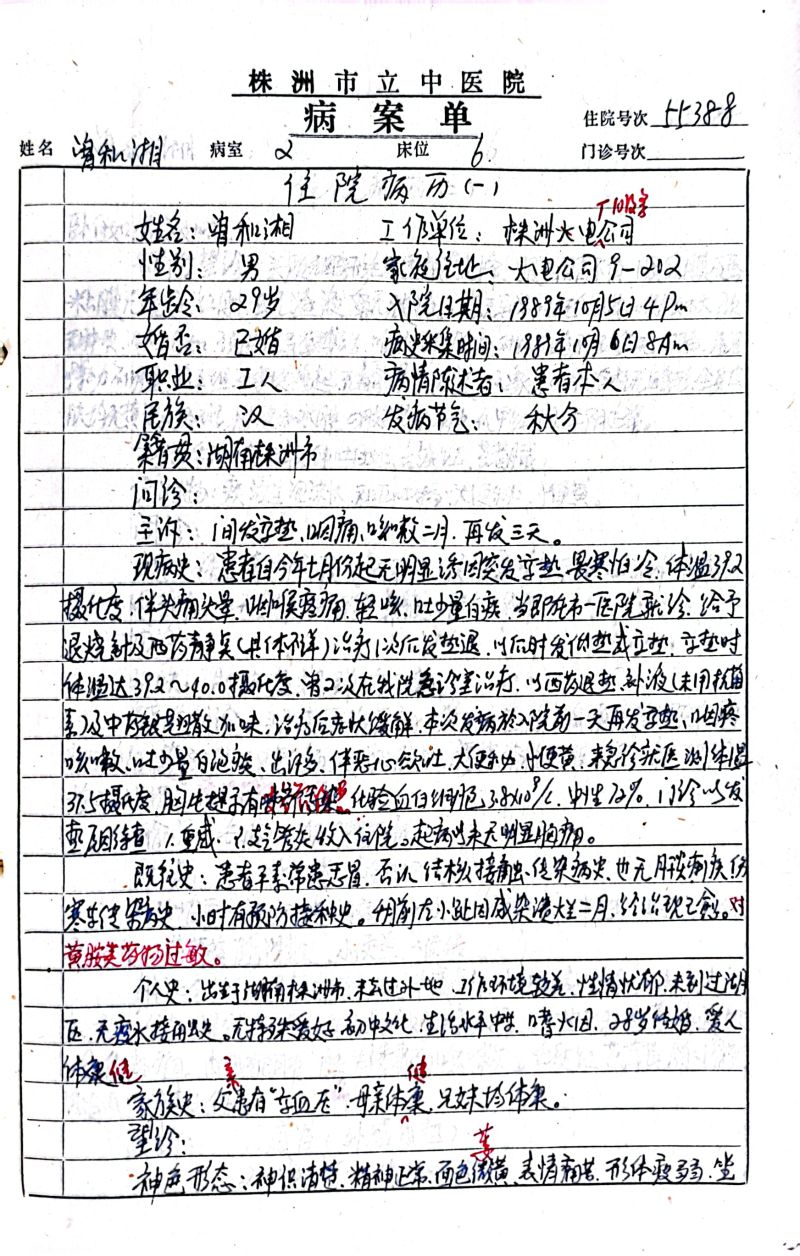 株洲市立中医院
病案单
住院号次 55388
姓名 曾和湘 病室 2 床位 6. 门诊号次
住院病历(一)
姓名：曾和湘 工作单位：株洲火电公司
性别：男 家庭住址：火电公司9-202
年龄：29岁 入院日期：1989年10月5日4Pm
婚否：已婚 病史采集时间：1989年10月6日8Am
职业：工人 病情陈述者：患者本人
民族：汉 发病节气：秋分
籍贯：湖南株洲市
问诊：
主诉：间发高热、咽痛、咳嗽二月，再发三天。
现病史：患者自今年七月份起无明显诱因突发高热，畏寒怕冷，体温39.2
摄氏度，伴头痛头晕，咽喉疼痛，轻咳，吐少量白痰，当即在市一医院就诊，给予
退烧针及西药静点(具体不详)治疗1次后发热退，以后时发低热或高热，高热时
体温达39.2~40.0摄氏度，曾2次在我院急诊室治疗，以西药退热、补液(未用抗菌
素)及中药银翘散加味，治疗后症状缓解，本次发病于入院前一天再发高热、咽疼
咳嗽、吐少量白泡痰、出汗多，伴恶心欲吐，大便秘，小便黄，来急诊就医，测体温
37.5摄氏度，胸片提示有 化验血白细胞3.8x10⁹/L，中性72%，门诊以发
热原因待查 1.重感 收入住院。起病以来无明显胸痛。
既往史：患者平素常患感冒，否认结核接触史、传染病史，也无 痢疾伤
寒等传染病史，小时有预防接种史。 前左小趾因感染溃烂二月，经治现已愈。对
磺胺类药物过敏。
个人史：出生于湖南株洲市，未去过外地，工作环境较差，性情忧郁，未到过湖
区，无疫水接触史，无特殊爱好，初中文化，生活水平中等，嗜火烟，28岁结婚，爱人
体康健
家族史：父亲患有“高血压”，母亲体健康，兄妹均体康。
望诊：
神色形态：神识清楚，精神正常，面色微萎黄，表情痛苦，形体瘦弱，坐